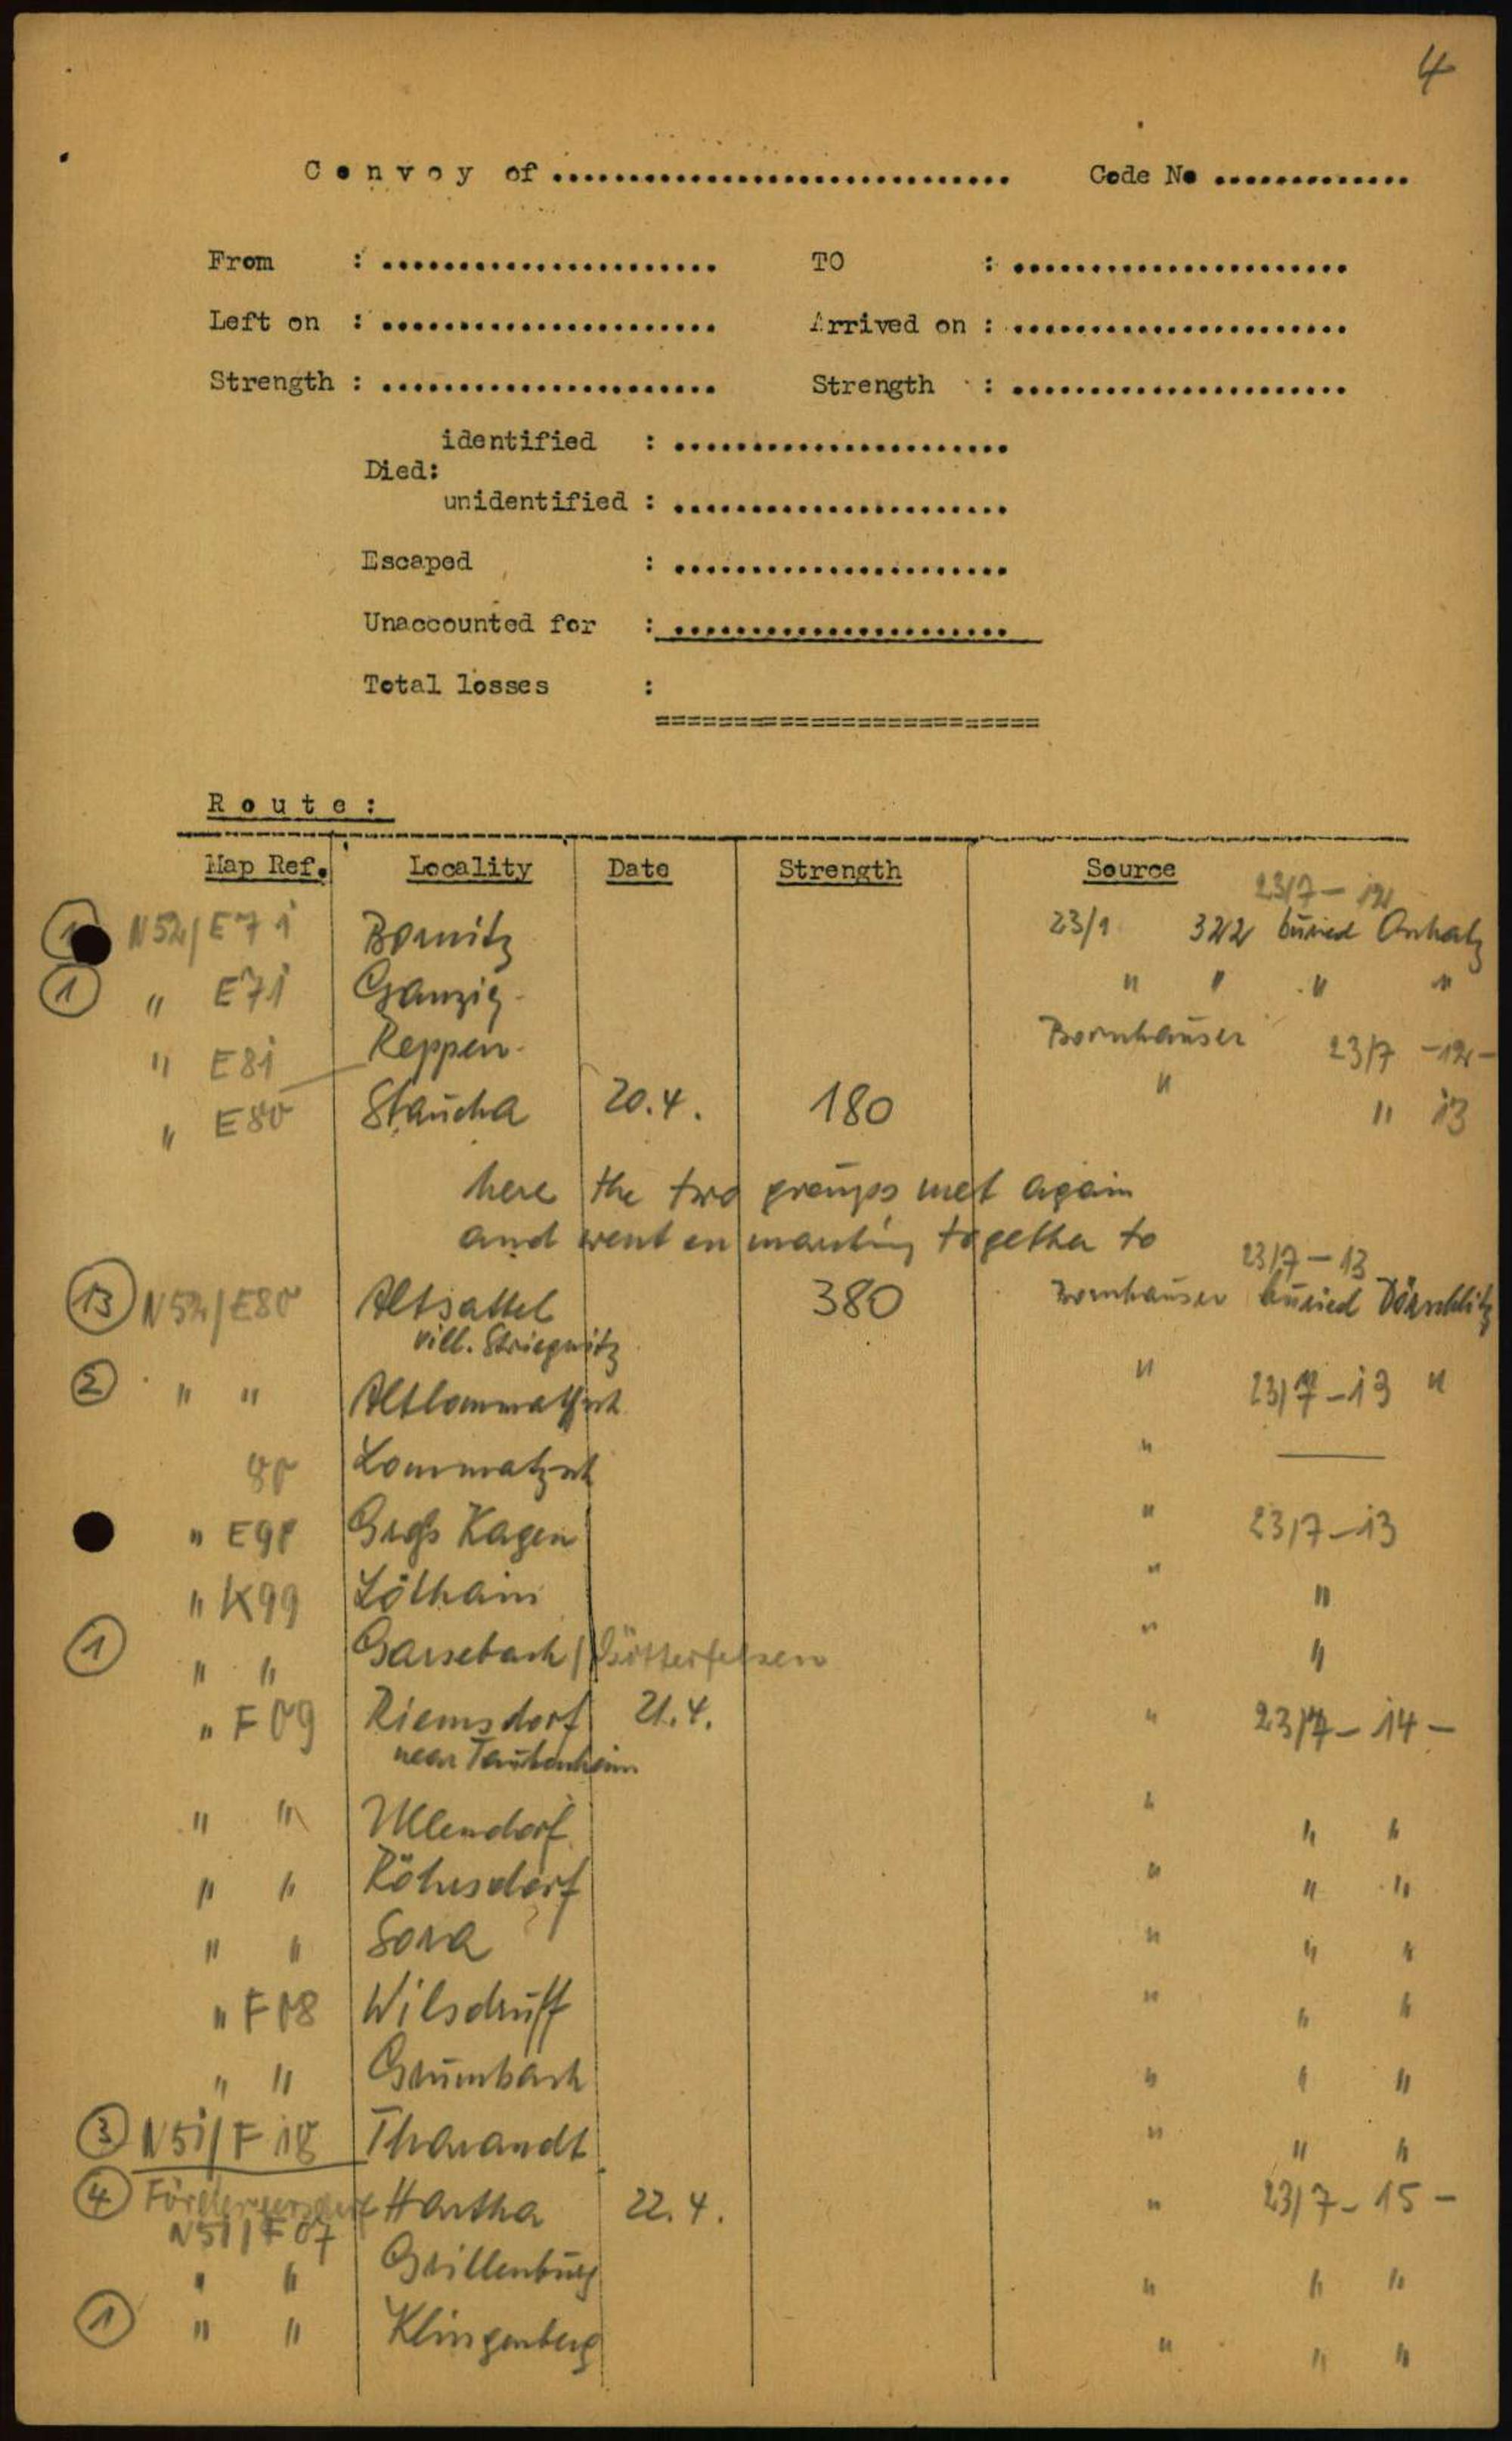 4
Convoy of .............................. Code No .............
From : ...................... TO : ......................
Left on : ...................... Arrived on : ......................
Strength : ...................... Strength : ......................
identified : ......................
Died:
unidentified : ......................
Escaped : ......................
Unaccounted for : ......................
Total losses :
=========================
Route:
Map Ref. Locality Date Strength Source
23/7 - 12
N52/E71 Bornitz 23/1 322 buried Oschatz
1 " E71 Ganzig " " " "
" E81 Reppen Bornhäuser 23/7 -12-
" E80 Staucha 20.4. 180 " " 13
here the two groups met again
and went on marching together to
23/7 - 13
13 N52/E80 Altsattel 380 Bornhäuser buried Dörschlitz
vill. Striegnitz
2 " " Altlommatzsch " 23/7-13 "
80 Lommatzsch "
" E98 Groß Kagen " 23/7-13
" K99 Löthain " "
1 " " Garsebach/Götterfelsen " "
" F09 Riemsdorf 21.4. " 23/7-14-
near Taubenheim
" " Ullendorf " " "
" " Röhrsdorf " " "
" " Sora " " "
" F08 Wilsdruff " " "
" " Grumbach " " "
3 N51/F18 Tharandt " " "
4 Fördergersdorf Hartha 22.4. " 23/7-15-
N51/F07
" " Grillenburg " " "
1 " " Klingenberg " " "